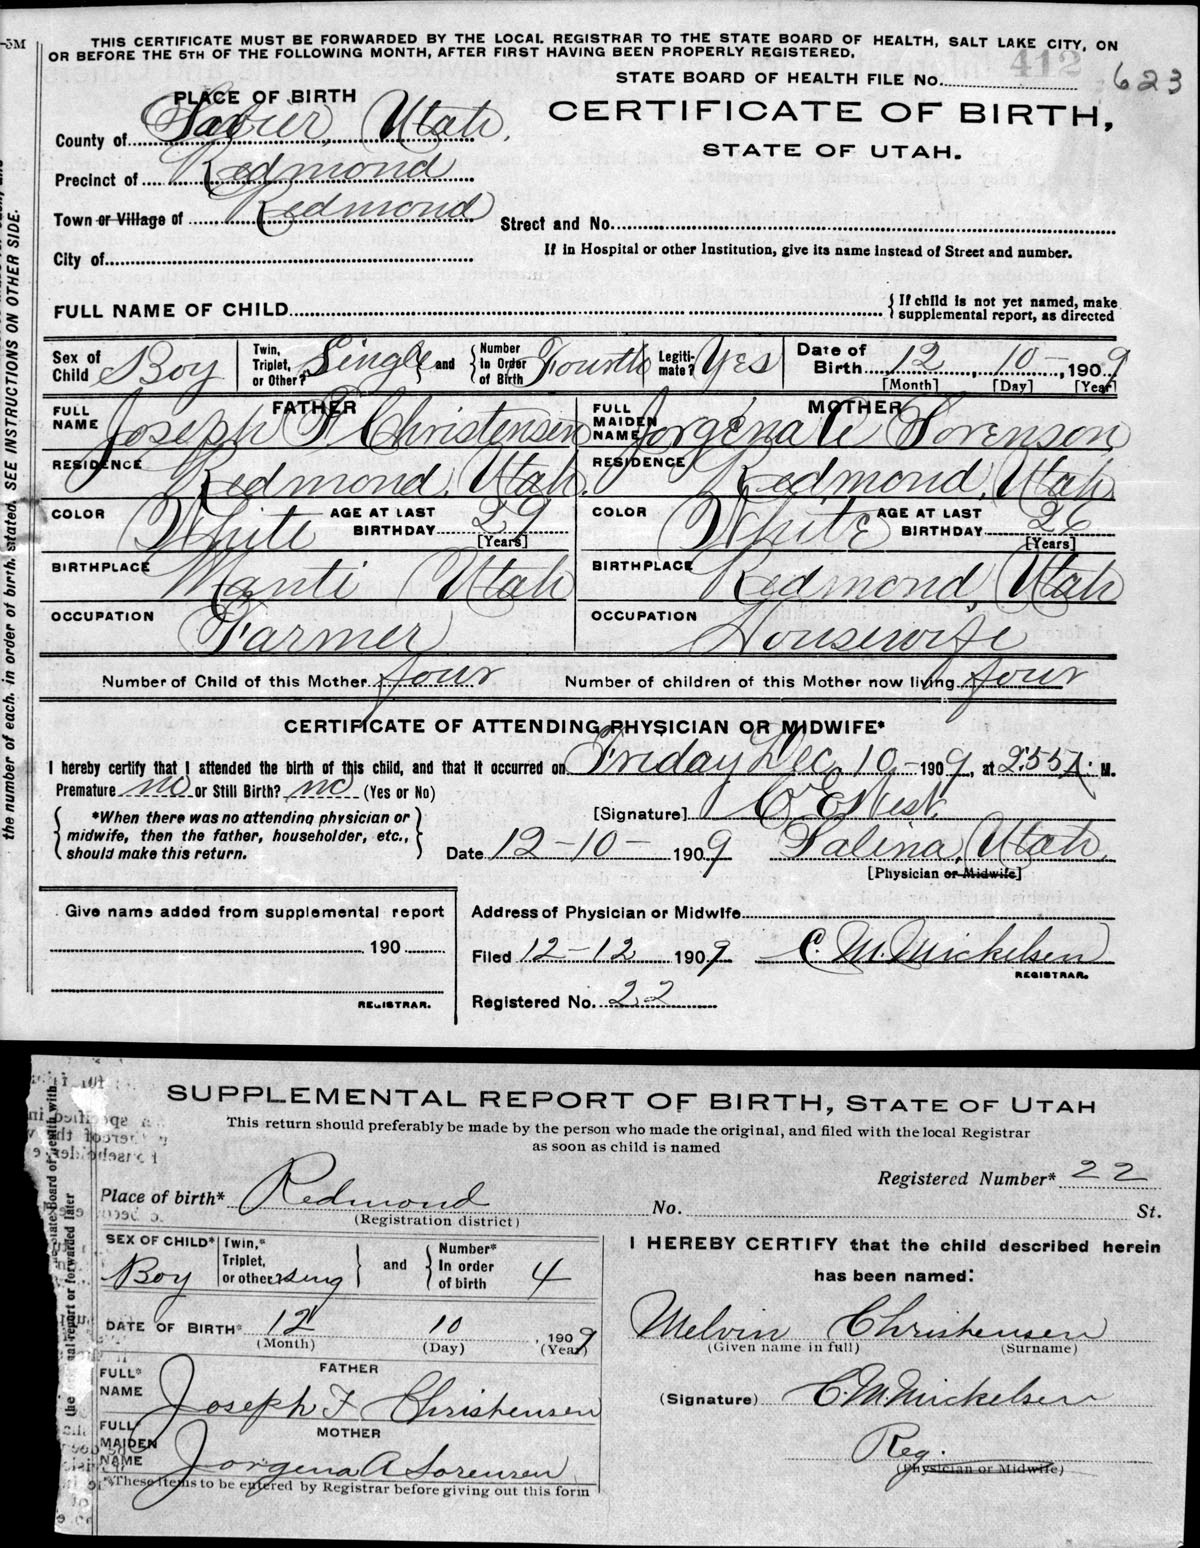 -5M
THIS CERTIFICATE MUST BE FORWARDED BY THE LOCAL REGISTRAR TO THE STATE BOARD OF HEALTH, SALT LAKE CITY, ON
OR BEFORE THE 5TH OF THE FOLLOWING MONTH, AFTER FIRST HAVING BEEN PROPERLY REGISTERED.
412
STATE BOARD OF HEALTH FILE No. 623
PLACE OF BIRTH
CERTIFICATE OF BIRTH,
STATE OF UTAH.
County of Sevier, Utah,
Precinct of Redmond
Town or Village of Redmond
Street and No.
City of
If in Hospital or other Institution, give its name instead of Street and number.
FULL NAME OF CHILD
{ If child is not yet named, make
supplemental report, as directed
Sex of Child Boy
Twin, Triplet, or Other? Single and { Number In Order of Birth Fourth
Legitimate? Yes
Date of Birth 12, 10-, 1909
[Month] [Day] [Year]
FATHER
FULL NAME Joseph F Christensen
MOTHER
FULL MAIDEN NAME Jorgena A Sorenson
RESIDENCE Redmond, Utah.
RESIDENCE Redmond, Utah
COLOR White AGE AT LAST BIRTHDAY 29 [Years]
COLOR White AGE AT LAST BIRTHDAY 26 [Years]
BIRTHPLACE Manti Utah
BIRTHPLACE Redmond, Utah
OCCUPATION Farmer
OCCUPATION Housewife
Number of Child of this Mother four Number of children of this Mother now living four
CERTIFICATE OF ATTENDING PHYSICIAN OR MIDWIFE*
I hereby certify that I attended the birth of this child, and that it occurred on Friday Dec 10-1909, at 2:55 A. M.
Premature no or Still Birth? no (Yes or No)
[Signature] C E West
{ *When there was no attending physician or
midwife, then the father, householder, etc.,
should make this return. }
Date 12-10- 1909 Salina, Utah,
[Physician or Midwife]
Give name added from supplemental report
190
REGISTRAR.
Address of Physician or Midwife
Filed 12-12 1909 C. M. Mickelsen
REGISTRAR.
Registered No. 22
the number of each, in order of birth, stated. SEE INSTRUCTIONS ON OTHER SIDE.
SUPPLEMENTAL REPORT OF BIRTH, STATE OF UTAH
This return should preferably be made by the person who made the original, and filed with the local Registrar
as soon as child is named
Registered Number* 22
Place of birth* Redmond No. St.
(Registration district)
SEX OF CHILD* Boy
Twin,* Triplet, or other? sing } and { Number* In order of birth 4
DATE OF BIRTH* 12 10, 1909
(Month) (Day) (Year)
FATHER
FULL* NAME Joseph F Christensen
MOTHER
FULL* MAIDEN NAME Jorgena A Sorensen
*These items to be entered by Registrar before giving out this form
I HEREBY CERTIFY that the child described herein
has been named:
Melvin Christensen
(Given name in full) (Surname)
(Signature) C. M. Mickelsen
Reg.
(Physician or Midwife)